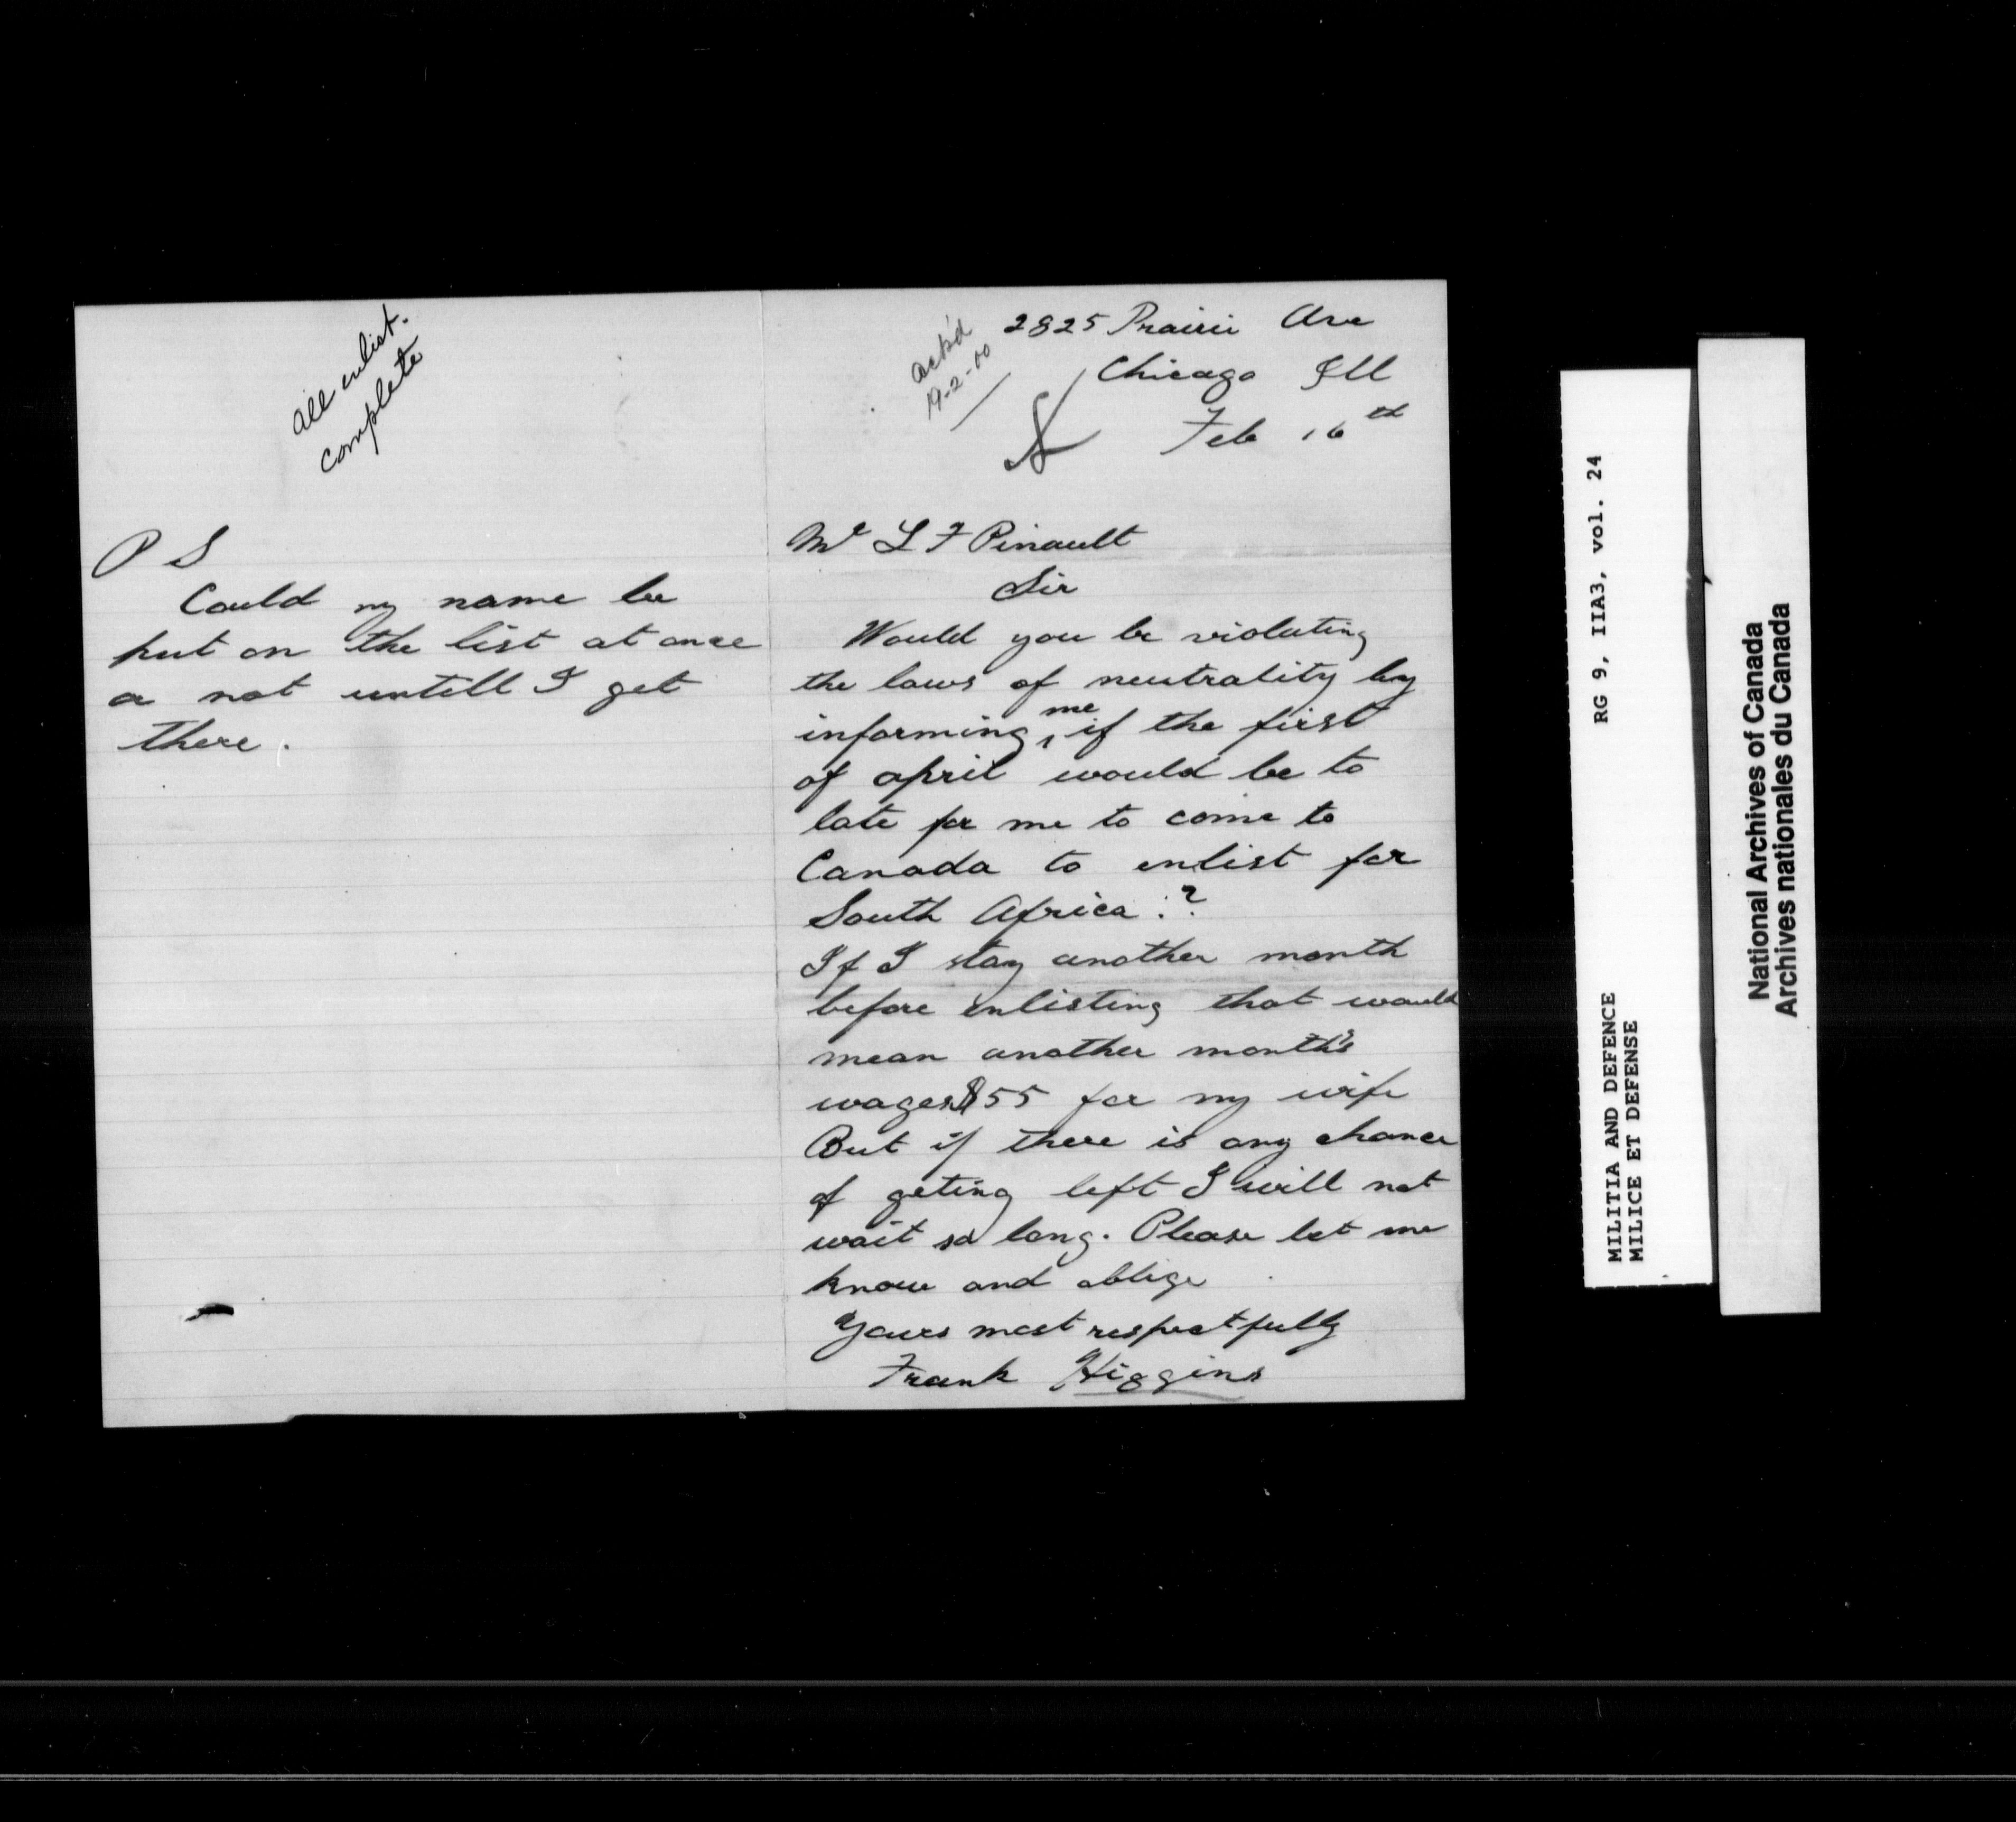 2825 Prairie Ave
Chicago Ill
Feb 16th
Ack'd
19-2-00
Mr L F Pinault
Sir
Would you be violating
the laws of neutrality by
informing me if the first
of april would be to
late for me to come to
Canada to enlist for
South Africa.?
If I stay another month
before enlisting that would
mean another month's
wages $55 for my wife
But if there is any chance
of geting left I will not
wait so long. Please let me
know and oblige
Yours most respectfully
Frank Higgins
All enlist.
complete
P S
Could my name be
put on the list at once
or not untill I get
there.
RG 9, IIA3, vol. 24
MILITIA AND DEFENCE
MILICE ET DEFENSE
National Archives of Canada
Archives nationales du Canada